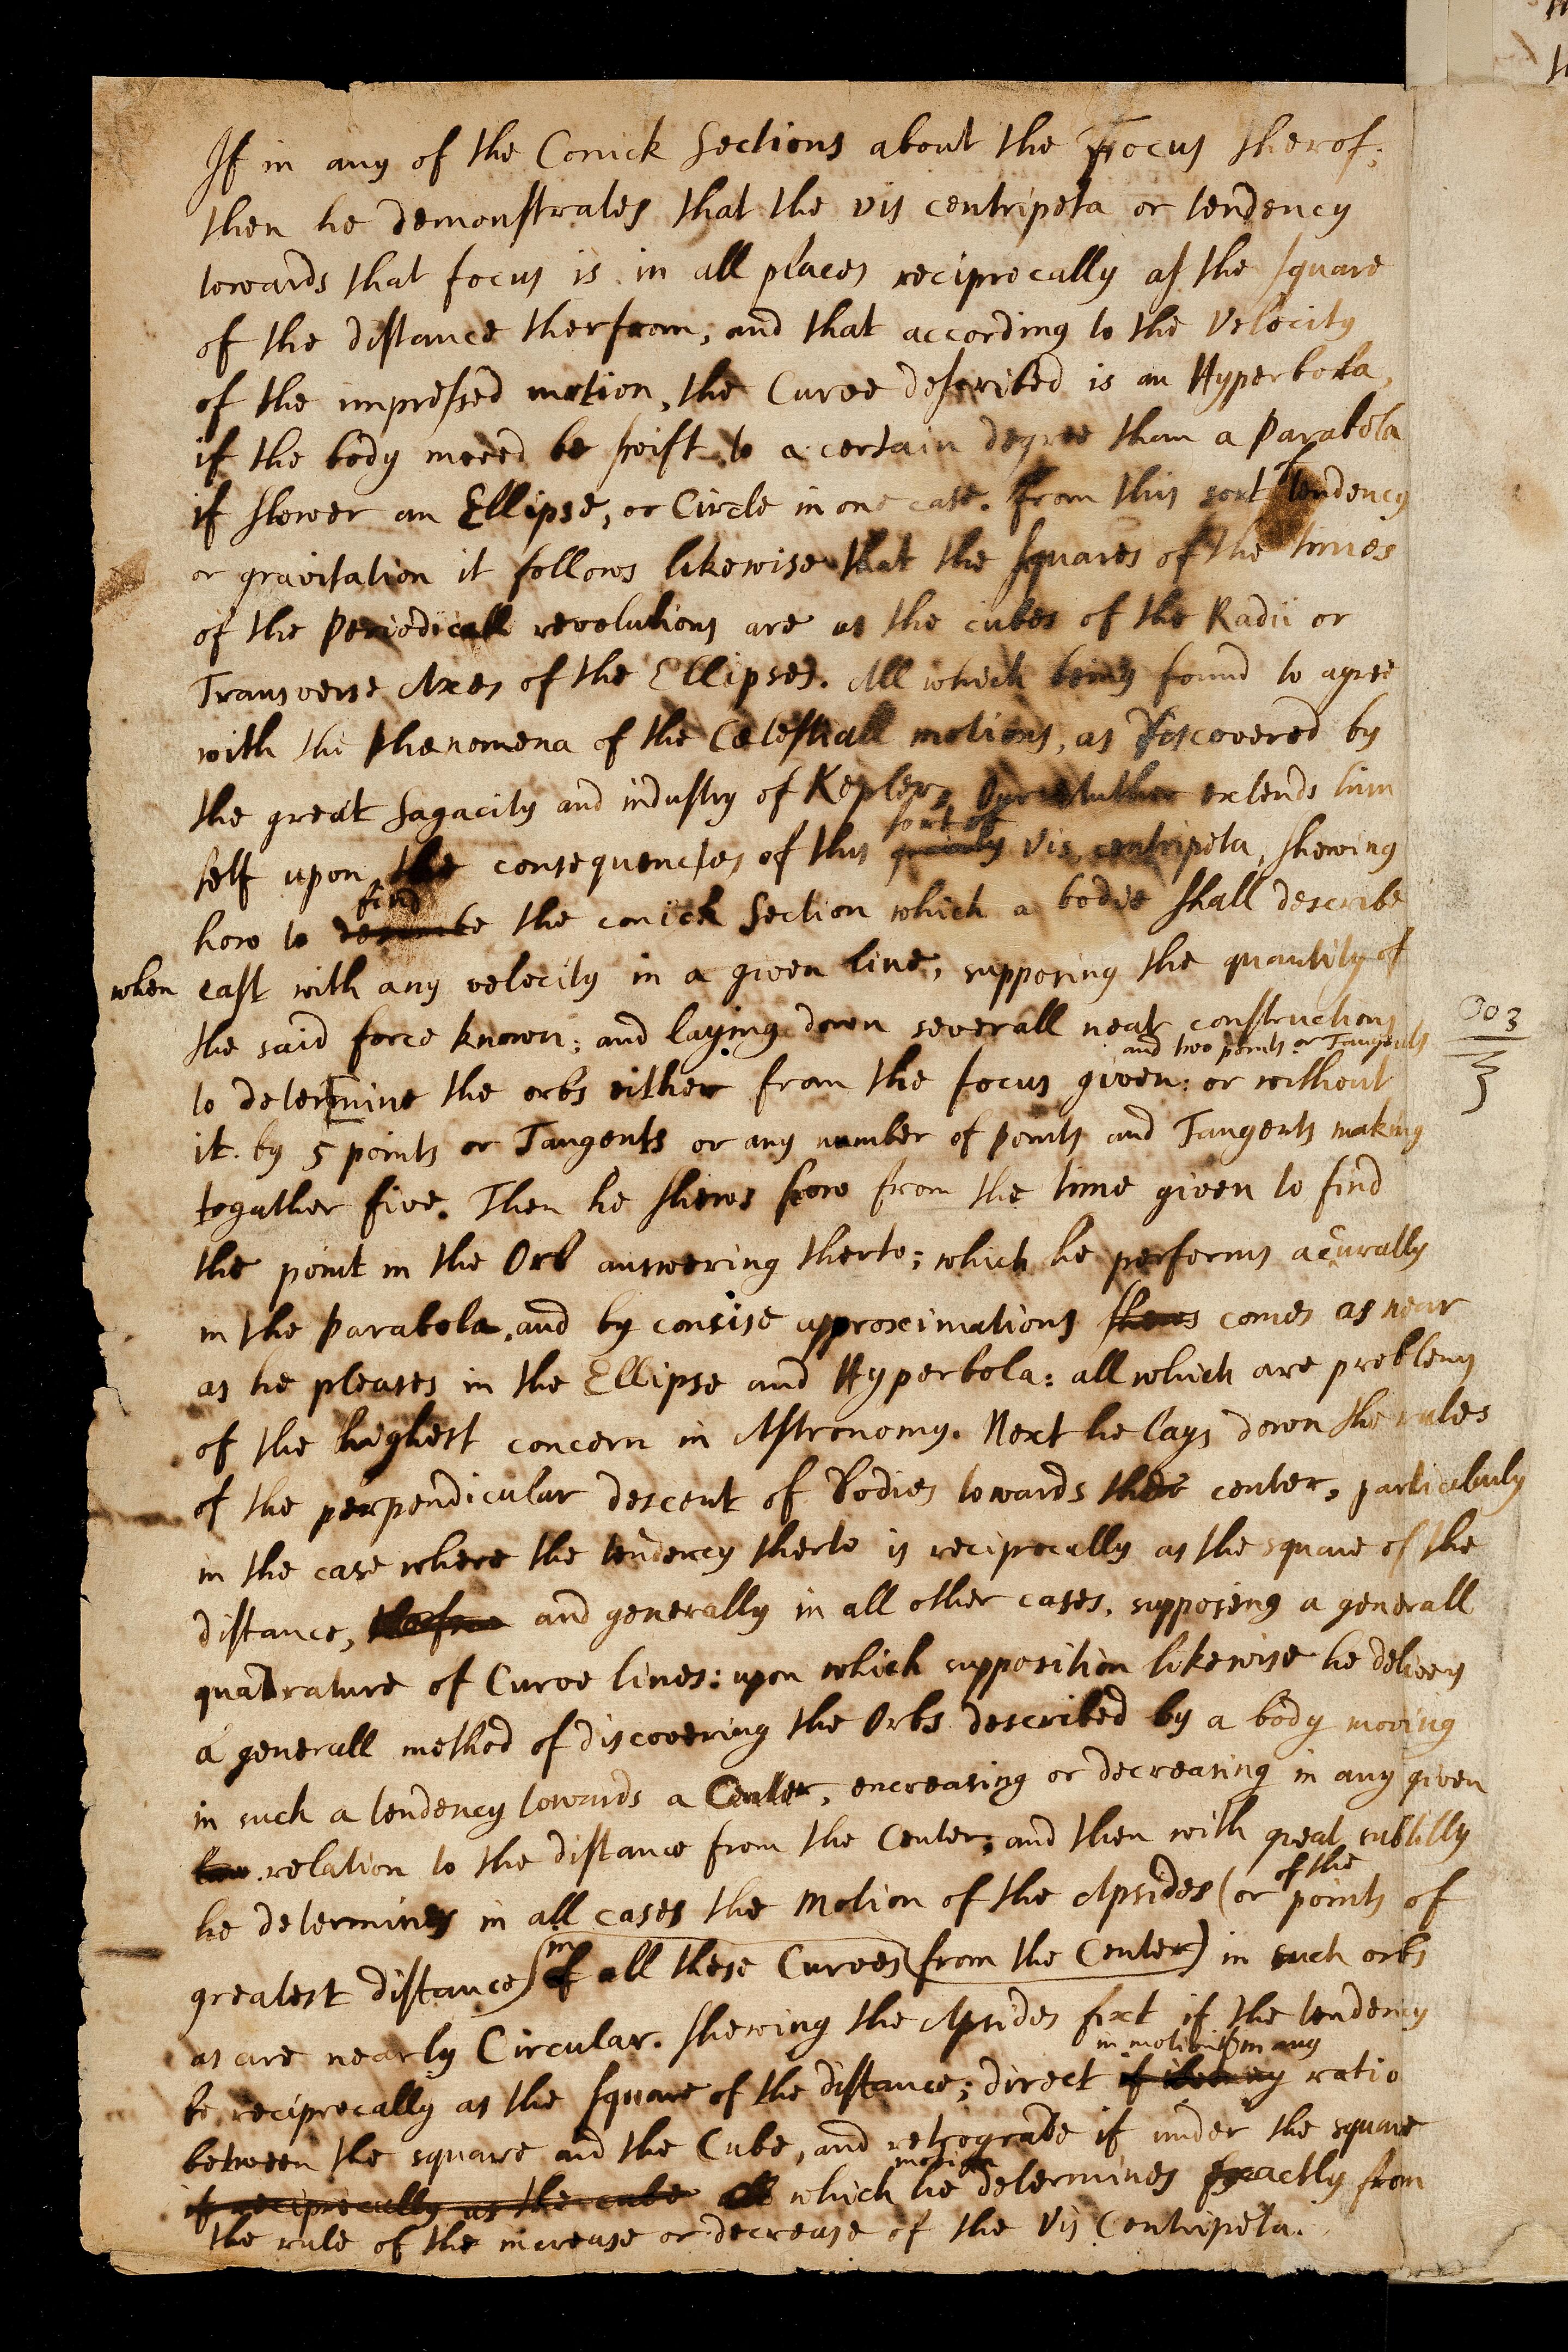 If in any of the Conick Sections about the Focus therof;
then he demonstrates that the vis centripeta or tendency
towards that focus is in all places reciprocally as the square
of the distance therfrom, and that according to the Velocity
of the impressed motion, the Curve described is an Hyperbola,
if the body moved be swift to a certain degree than a Parabola
if slower an Ellipse, or Circle in one case. from this sort tendency
or gravitation it follows likewise that the squares of the times
of the Periodicall revolutions are as the cubes of the Radii or
Transverse Axes of the Ellipses. All which being found to agree
with the Phænomena of the Cælestiall motions, as discovered by
the great Sagacity and industry of Kepler, Our extends him
sort of
self upon the consequences of this vis centripeta, shewing
find
how to describe the conick Section which a bodie shall describe
when cast with any velocity in a given line, supposing the quantity of
the said force known; and laying down severall neat constructions
and two points or Tangents
to determine the orbs either from the focus given: or without
it by 5 points or Tangents or any number of points and Tangents making
togather five. Then he shews how from the time given to find
the point in the Orb answering therto; which he performs acurally
in the Parabola, and by consise approximations shews comes as near
as he pleases in the Ellipse and Hyperbola: all which are problems
of the highest concern in Astronomy. Next he lays down the rules
of the perpendicular descent of Bodies towards the center, particularly
in the case where the tendency therto is reciprocally as the square of the
distance, and generally in all other cases, supposing a generall
quadrature of Curve lines: upon which supposition likewise he delivers
a generall method of discovering the Orbs described by a body moving
in such a tendency towards a Center, encreasing or decreasing in any given
relation to the distance from the Center; and then with great subtilty
of the
he determines in all cases the Motion of the Apsides (or points of
in
greatest distance) of all these Curves (from the Center) in such orbs
as are nearly Circular. Shewing the Apsides fixt if the tendency
in motion in any
be reciprocally as the square of the distance; direct ratio
between the square and the Cube, and retrograde if under the square
motion
if reciprocally as the cube all which he determines exactly from
the rule of the increase or decrease of the Vis Centripeta.